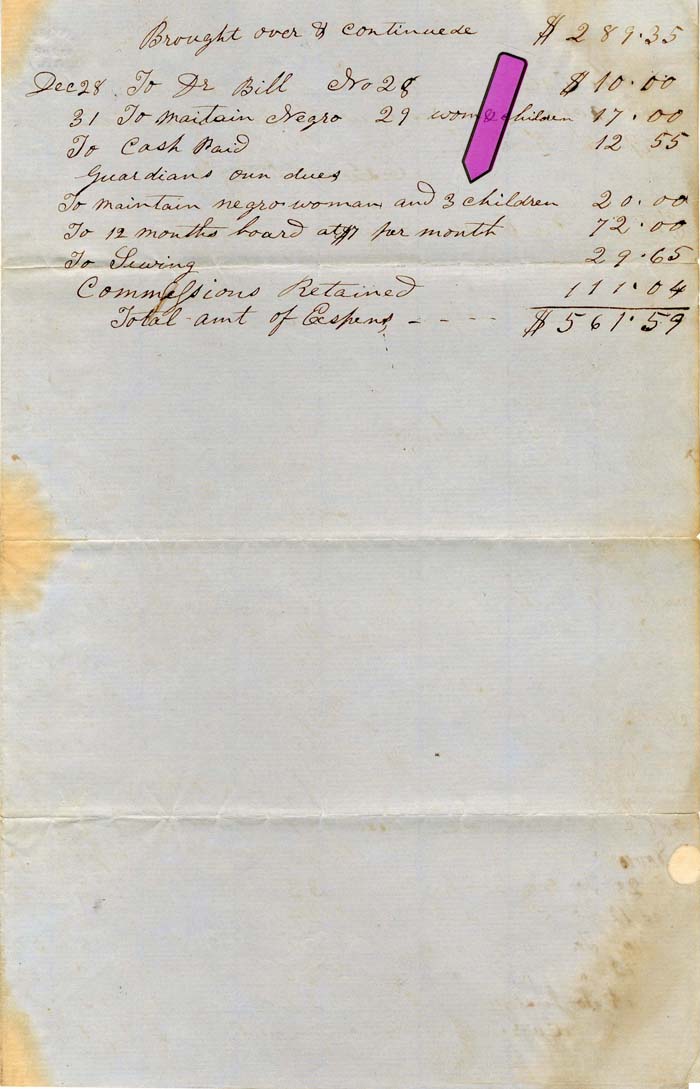 Brought over & continuede $ 289.35
Dec 28 To Dr Bill No 28 $10.00
31 To maitain Negro 29 wom & children 17.00
To Cash Paid 12 55
Guardians own dues
To maintain negro woman and 3 children 20.00
To 12 months board at $7 per month 72.00
To Sewing 29.65
Commissions Retained 111.04
Total amt of Expens - - - - $561.59